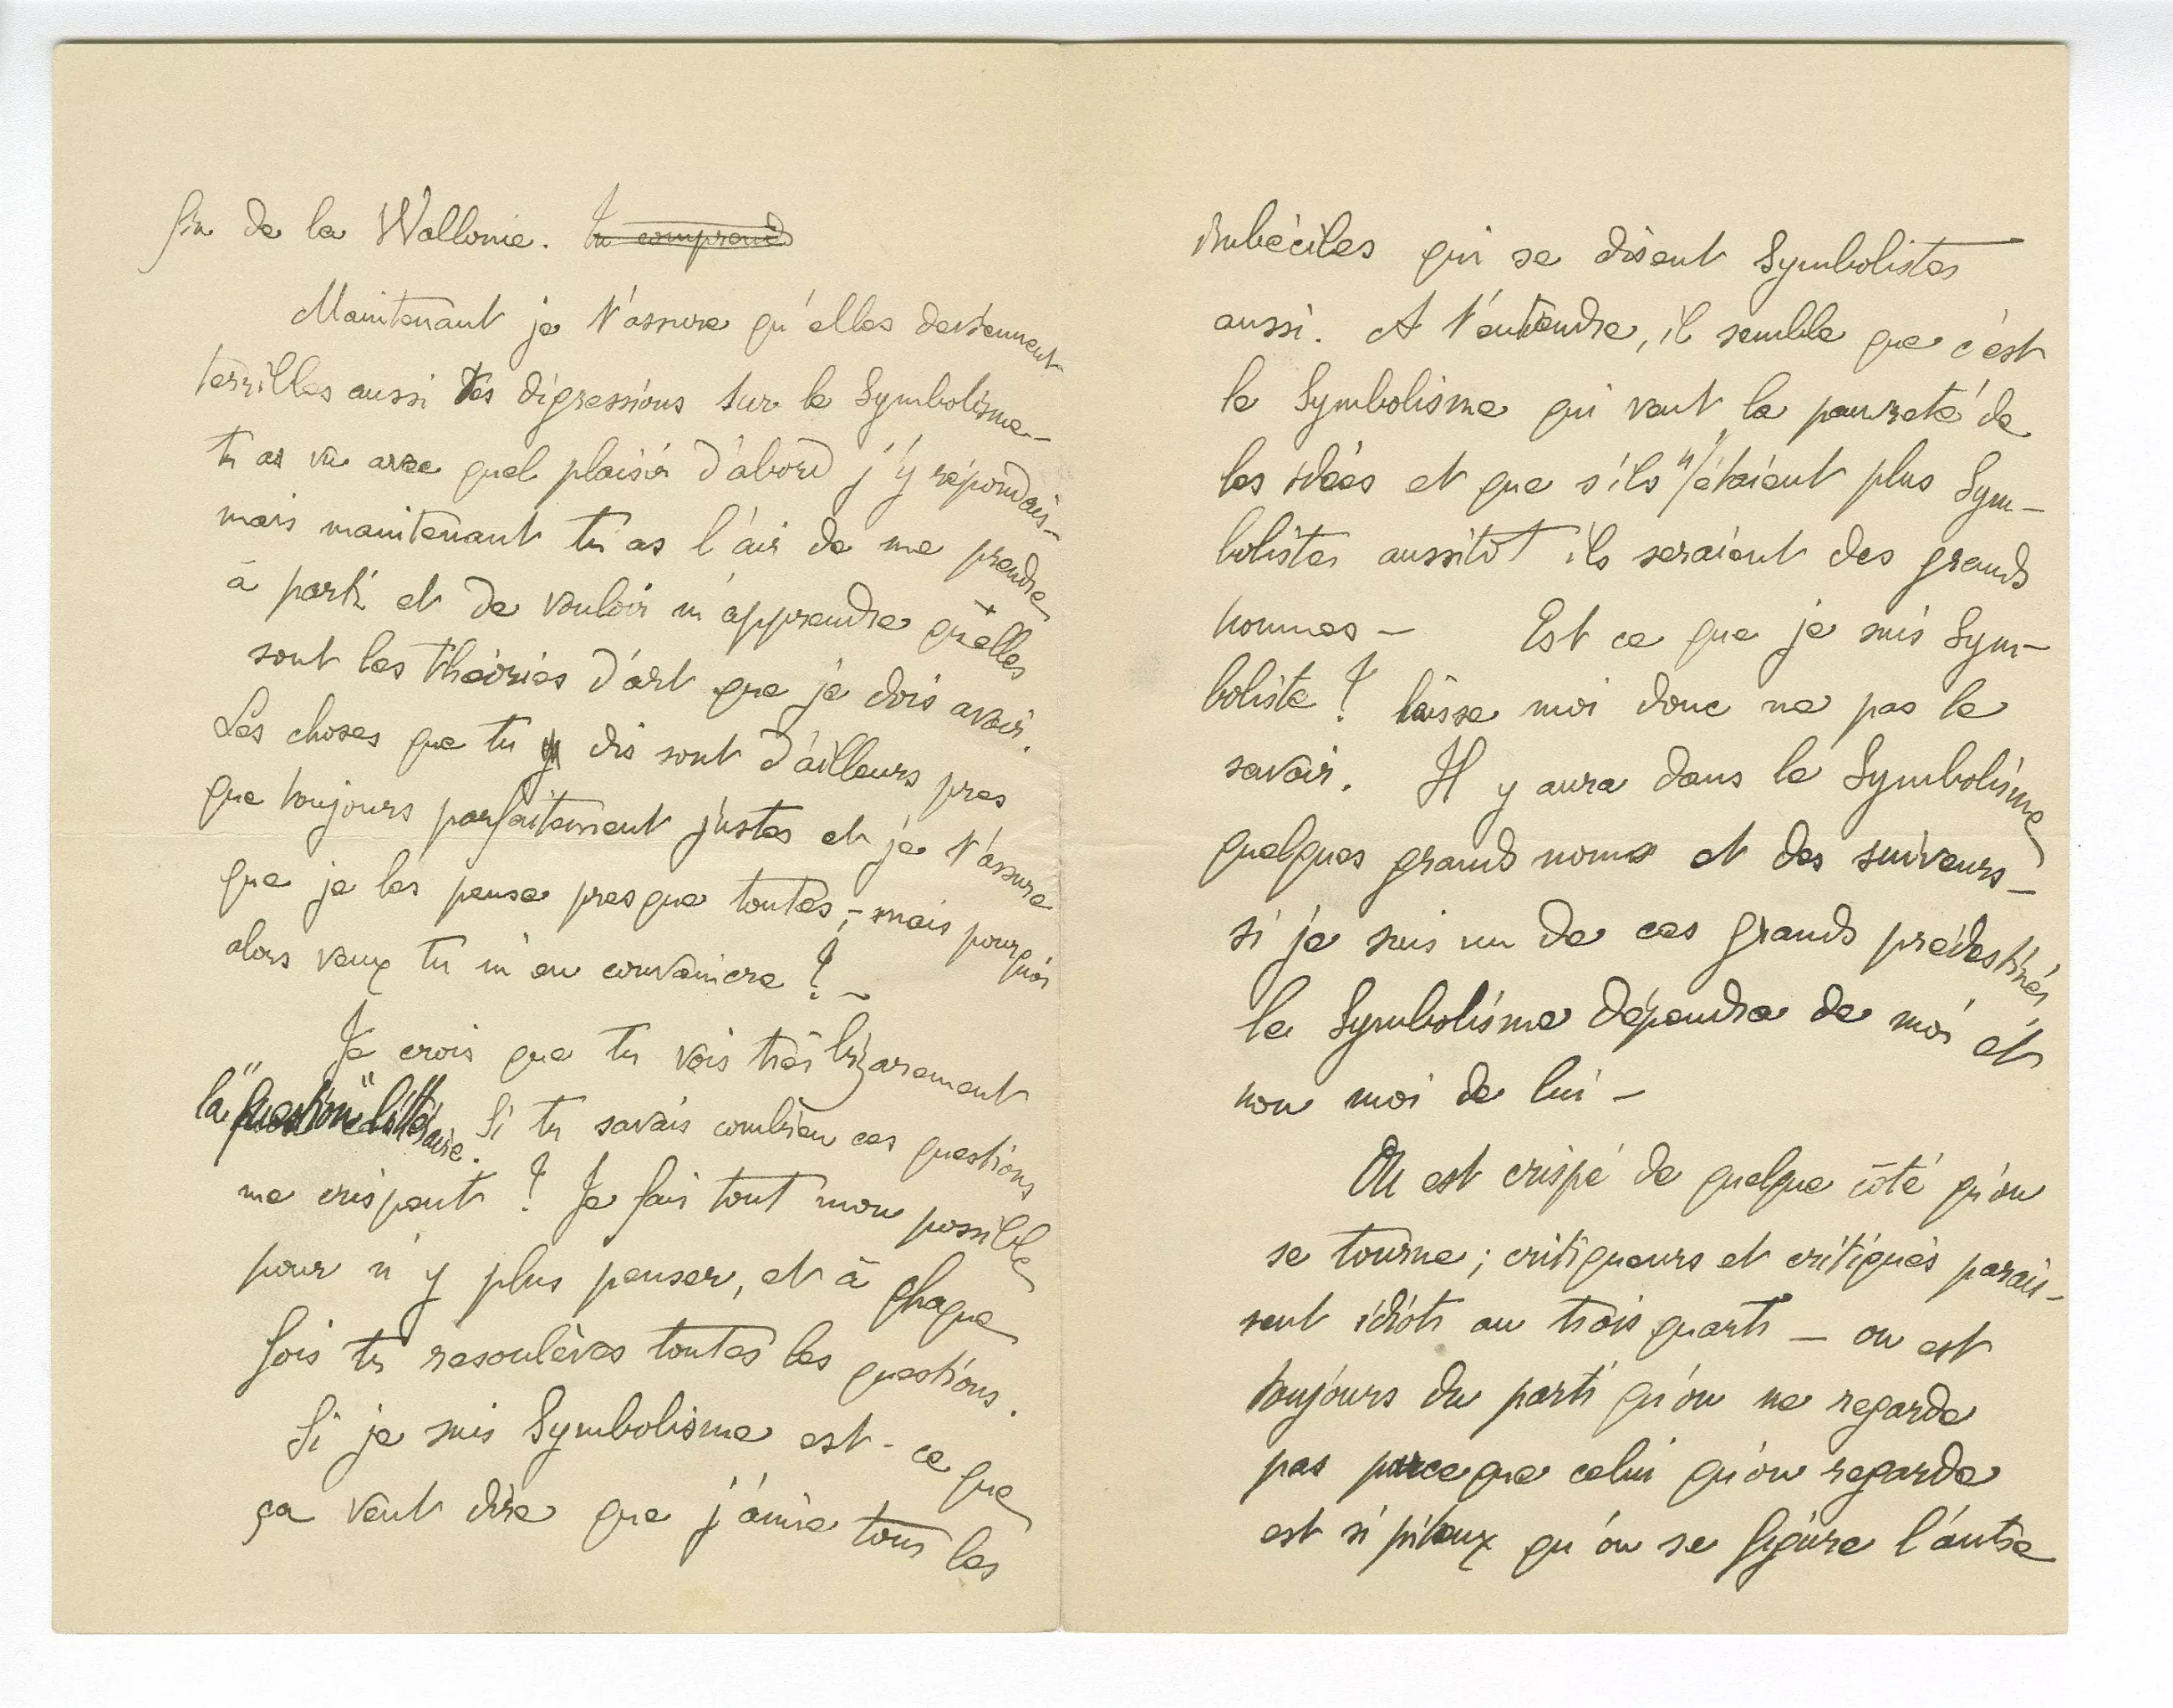 fin de la Wallonie. Tu comprends
Maintenant je t'assure qu'elles deviennent
terribles aussi tes digressions sur le Symbolisme –
tu as vu avec quel plaisir d'abord j'y répondais –
mais maintenant tu as l'air de me prendre
à parti et de vouloir m'apprendre quelles
sont les théories d'art que je dois avoir.
Les choses que tu dis sont d'ailleurs pres
que toujours parfaitement justes et je t'assure
que je les pense presque toutes ; – mais pourquoi
alors veux tu m'en convaincre ? –
Je crois que tu vois très bizarement
la "question" littéraire. Si tu savais combien ces questions
me crispent ! Je fais tout mon possible
pour n'y plus penser, et à chaque
fois tu resoulèves toutes les questions.
Si je suis Symbolisme est-ce que
ça veut dire que j'aime tous les
imbéciles qui se disent Symbolistes
aussi. A t'entendre, il semble que c'est
le Symbolisme qui veut la pauvreté de
les idées et que s'ils n'étaient plus Sym-
bolistes aussitôt ils seraient des grands
hommes – Est ce que je suis Sym-
boliste ? laisse moi donc ne pas le
savoir. Il y aura dans le Symbolisme
quelques grands noms et des suiveurs –
si je suis un de ces grands prédestinés
le Symbolisme dépendra de moi et
non moi de lui –
On est crispé de quelque côté qu'on
se tourne ; critiqueurs et critiqués parais-
sent idiots au trois quarts – on est
toujours du parti qu'on ne regarde
pas parce que celui qu'on regarde
est si piteux qu'on se figure l'autre